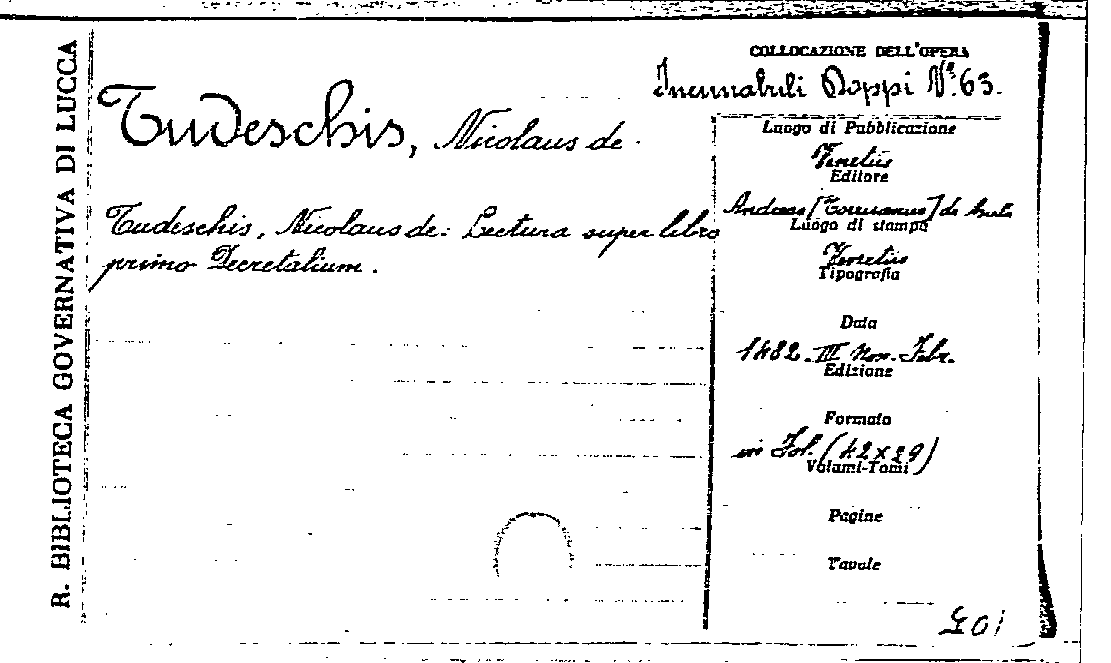 R. BIBLIOTECA GOVERNATIVA DI LUCCA
Tudeschis, Nicolaus de.
Tudeschis, Nicolaus de: Lectura super libro
primo Decretalium.
COLLOCAZIONE DELL'OPERA
Incunabuli Doppi N.º 63.
Luogo di Pubblicazione
Venetiis
Editore
Andreas [Torresanus] de
Luogo di stampa
Venetiis
Tipografia
Data
1482. III Non. Febr.
Edizione
Formato
in Fol. (42×29)
Volumi-Tomi
Pagine
Tavole